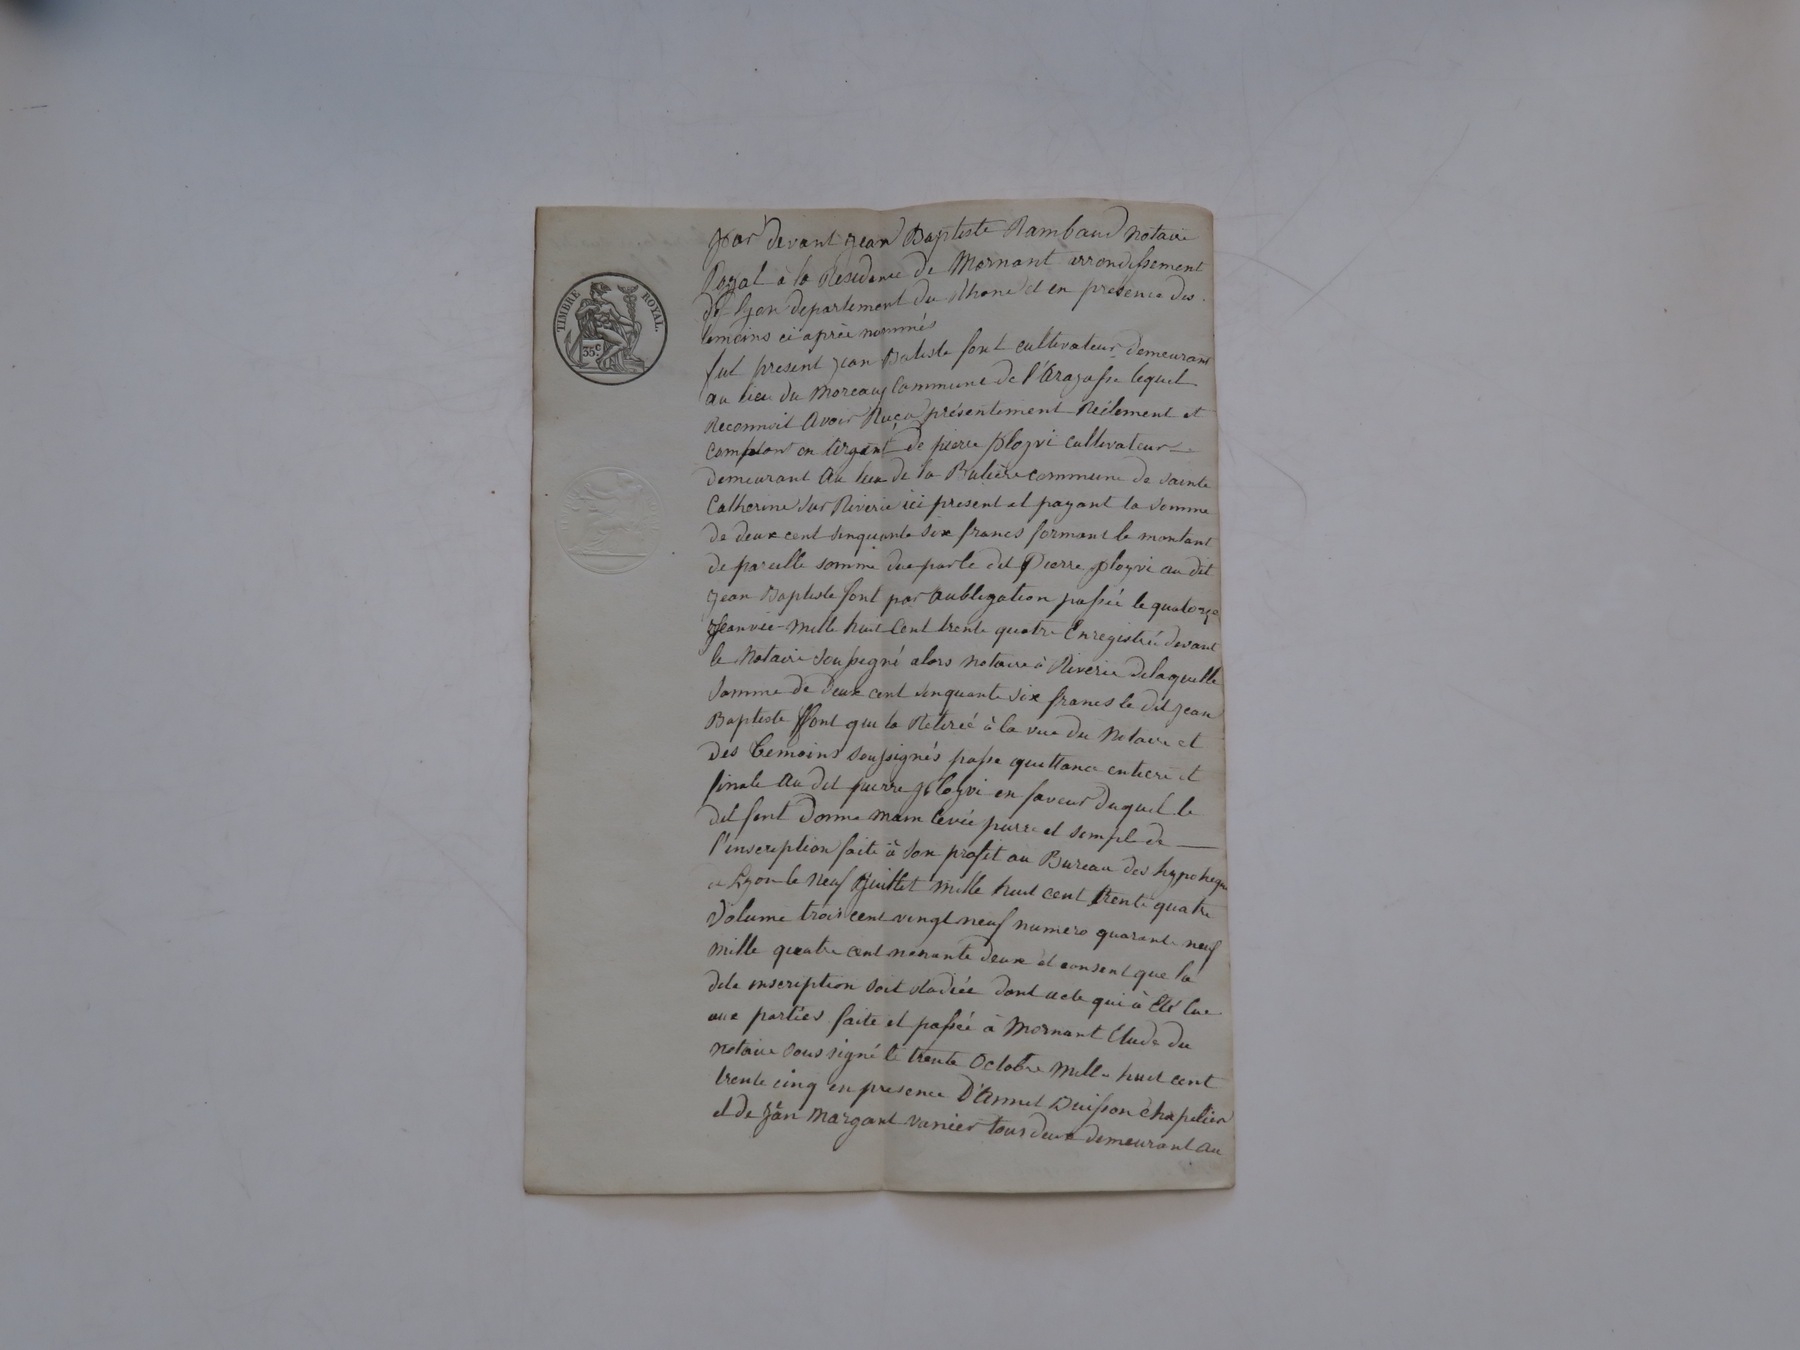 TIMBRE ROYAL.
35.c
Par devant Jean Baptiste Rambaud notaire
Royal à la Résidence de Mornant arrondissement
de Lyon departement du Rhone et en presence des
temoins ci après nommés
fut present Jean Batiste font cultivateur demeurant
au lieu du Moreau Commune de l'Arajasse lequel
Reconnoit Avoir Reçu présentement Réélement et
comptant en Argent de pierre ployvi cultivateur
demeurant Au lieu de la Bulière commune de Sainte
Catherine Sur Riverie ici present et payant la somme
de deux cent sinquante six francs formant le montant
de pareille somme due par le dit Pierre ployvi au dit
Jean Baptiste font par aubligation passée le quatorze
Jeanvie mille huit Cent trente quatre Enregistrée devant
le Notaire Soussigné alors notaire à Riverie delaquelle
Somme de deux cent sinquante six francs le dit Jean
Baptiste ffont qui la Retireé à la vue du Notaire et
des Temoins Soussignés passe quittance entiere et
finale Au dit pierre ployvi en faveur duquel le
dit font Donne main levée purre et semple de
l'inscription faite à son profit au Bureau des hypoteque
a Lyon le neuf Juillet mille huit cent trente quatre
Volume trois cent vingt neuf numero quarante neuf
mille quatre cent nonante deux et consent que la
dite inscription soit radiée dont acte qui à Eté lue
aux parties faite et passée à Mornant Etude du
notaire sous signé le trente Octobre Mille huit cent
trente cinq en presence D'Annet Buisson chapelier
et de Jean Margant vanier tous deux demeurant au